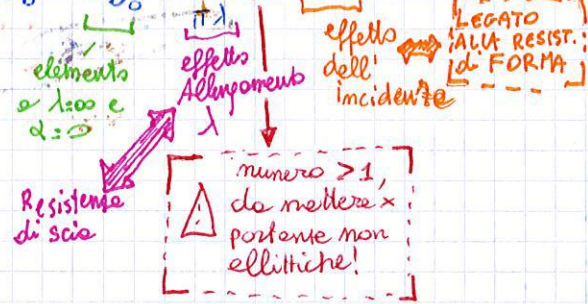 π λ
elemento
a λ=∞ e
α=0
effetto
Allungamento
λ
effetto
dell'
incidenza
LEGATO
ALLA RESIST.
di FORMA
Resistenza
di scia
numero >1,
da mettere x
portanze non
ellittiche!